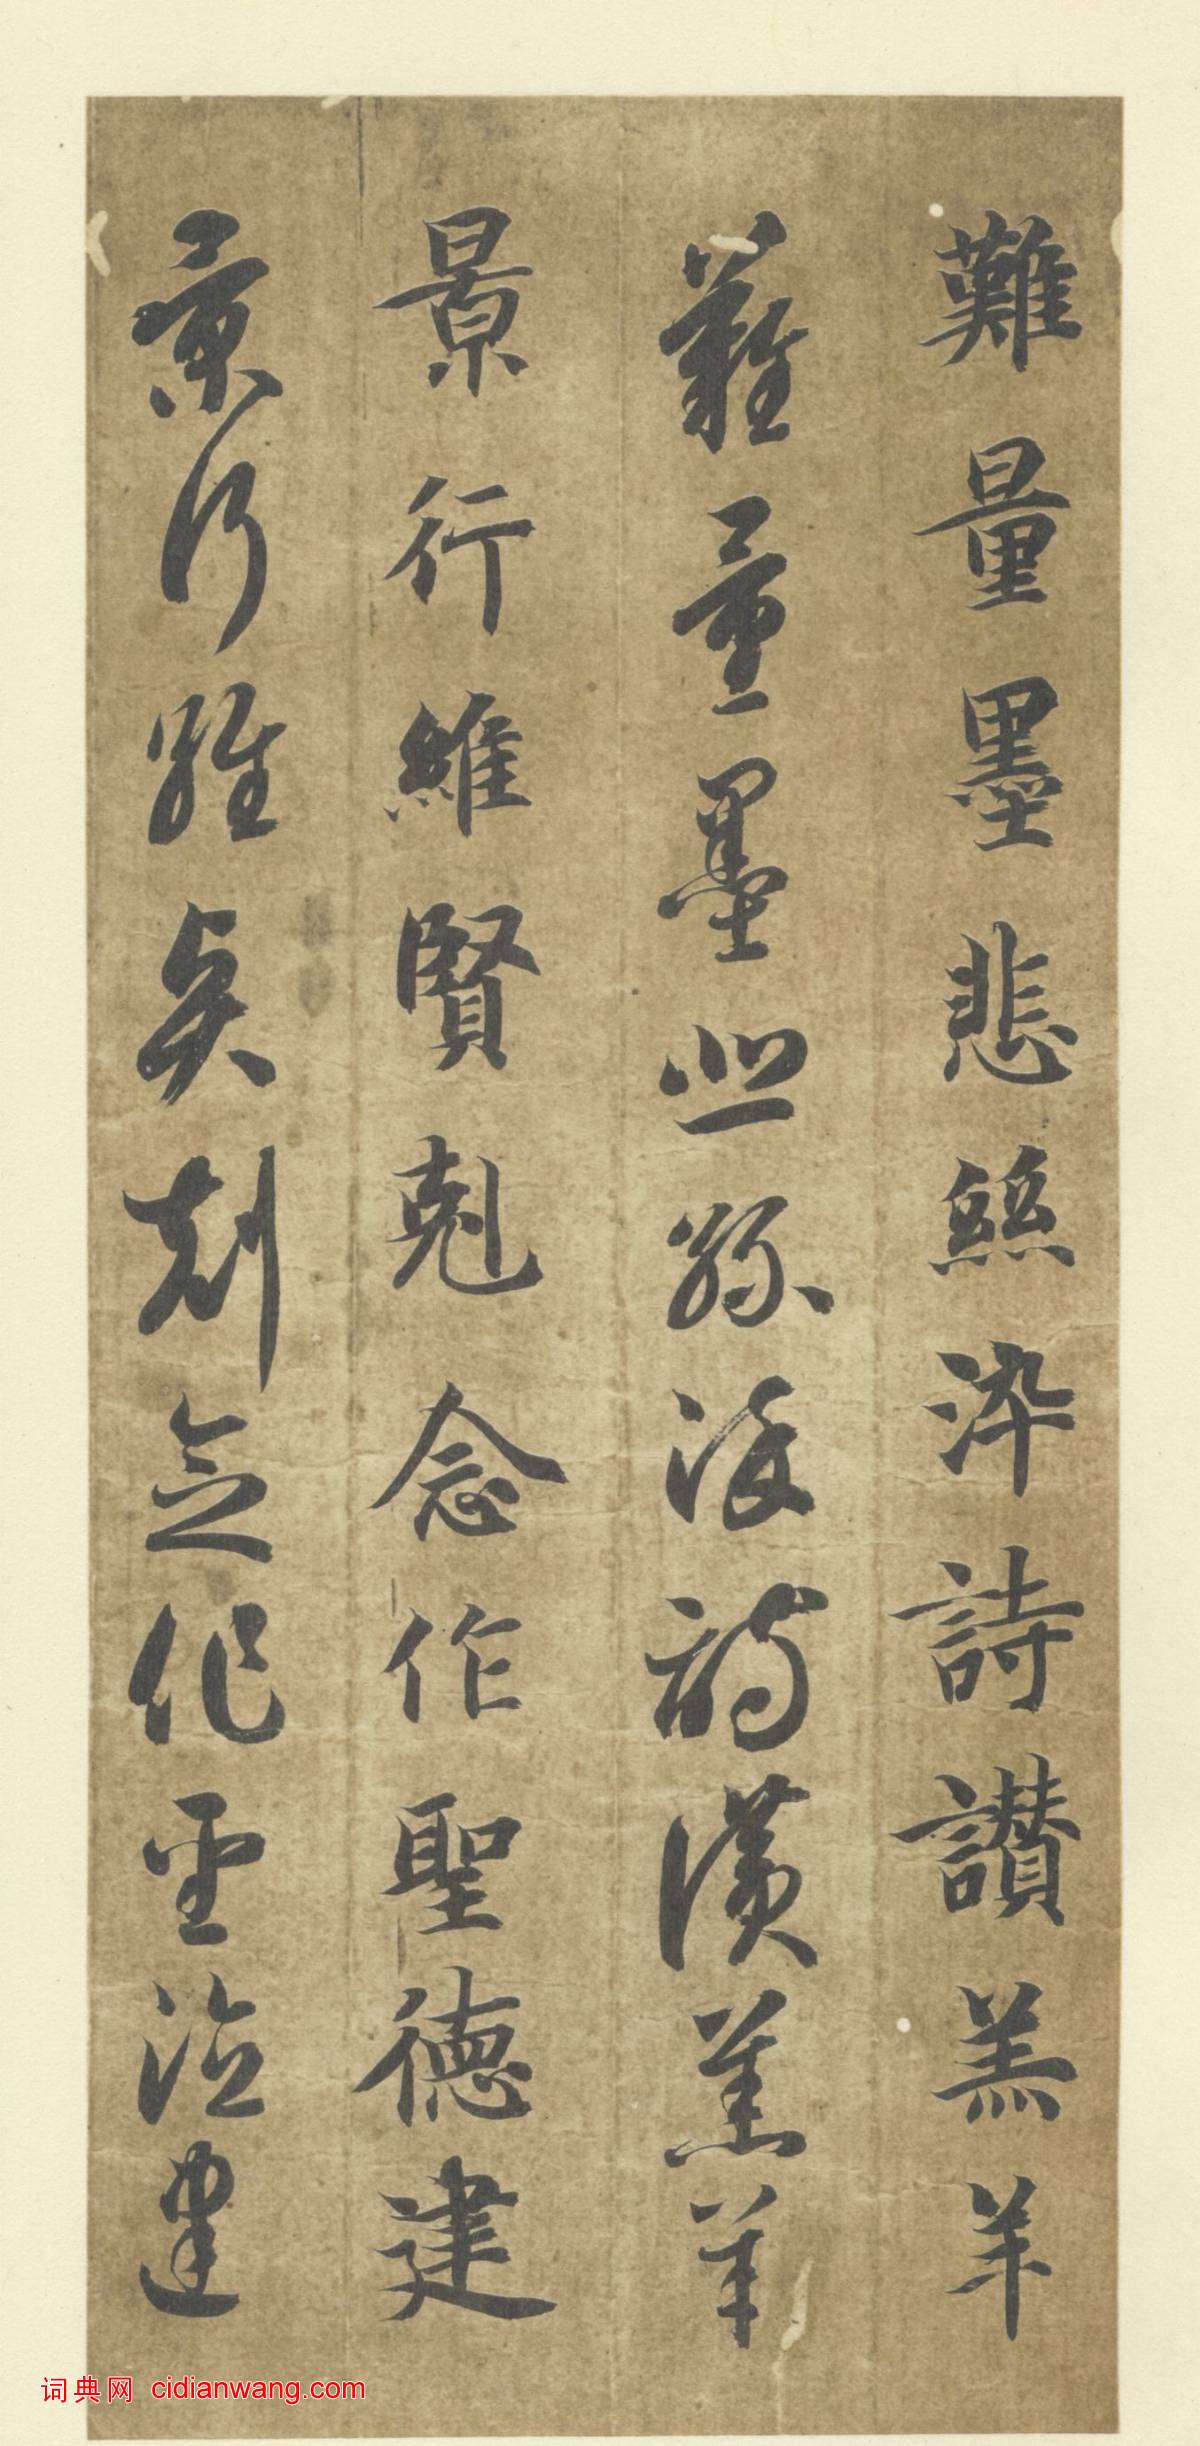 難量墨悲絲染詩讃羔羊
難量墨悲絲染詩讃羔羊
景行維賢剋念作聖德建
景行維賢剋念作聖德建
词典网 cidianwang.com